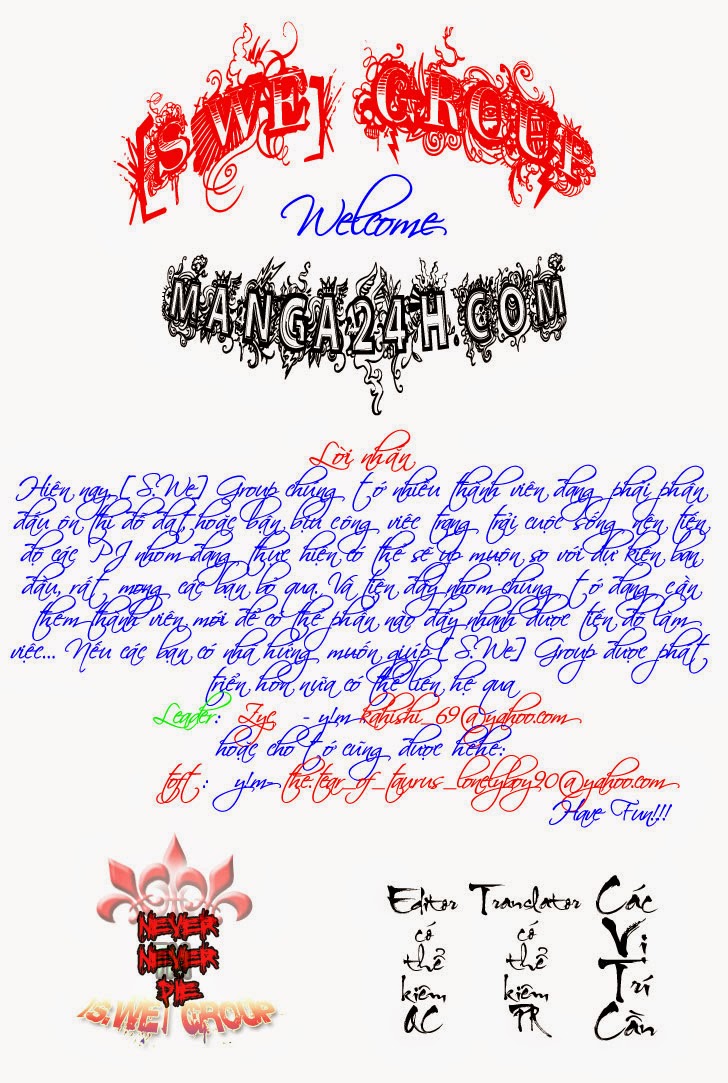 [S.WE] GROUP
Welcome
MANGA24H.COM
Lời nhắn
Hiện nay [S.We] Group chúng tớ nhiều thành viên đang phải phấn
đấu ôn thi đỗ đạt hoặc bận bịu công việc trang trải cuộc sống nên tiến
độ các PJ nhóm đang thực hiện có thể sẽ up muộn so với dự kiến ban
đầu, rất mong các bạn bỏ qua. Và tiện đây nhóm chúng tớ đang cần
thêm thành viên mới để có thể phần nào đẩy nhanh được tiến độ làm
việc... Nếu các bạn có nhã hứng muốn giúp [S.We] Group được phát
triển hơn nữa có thể liên hệ qua
Leader: Zyc - y!m kahishi_69@yahoo.com
hoặc cho tớ cũng được hehe:
toft: y!m- the.tear_of_taurus_lonelyboy90@yahoo.com
Have Fun!!!
NEVER
NEVER
DIE
[S.WE] GROUP
Editor
có
thể
kiêm
QC
Translator
có
thể
kiêm
PR
Các
Vị
Trí
Cần